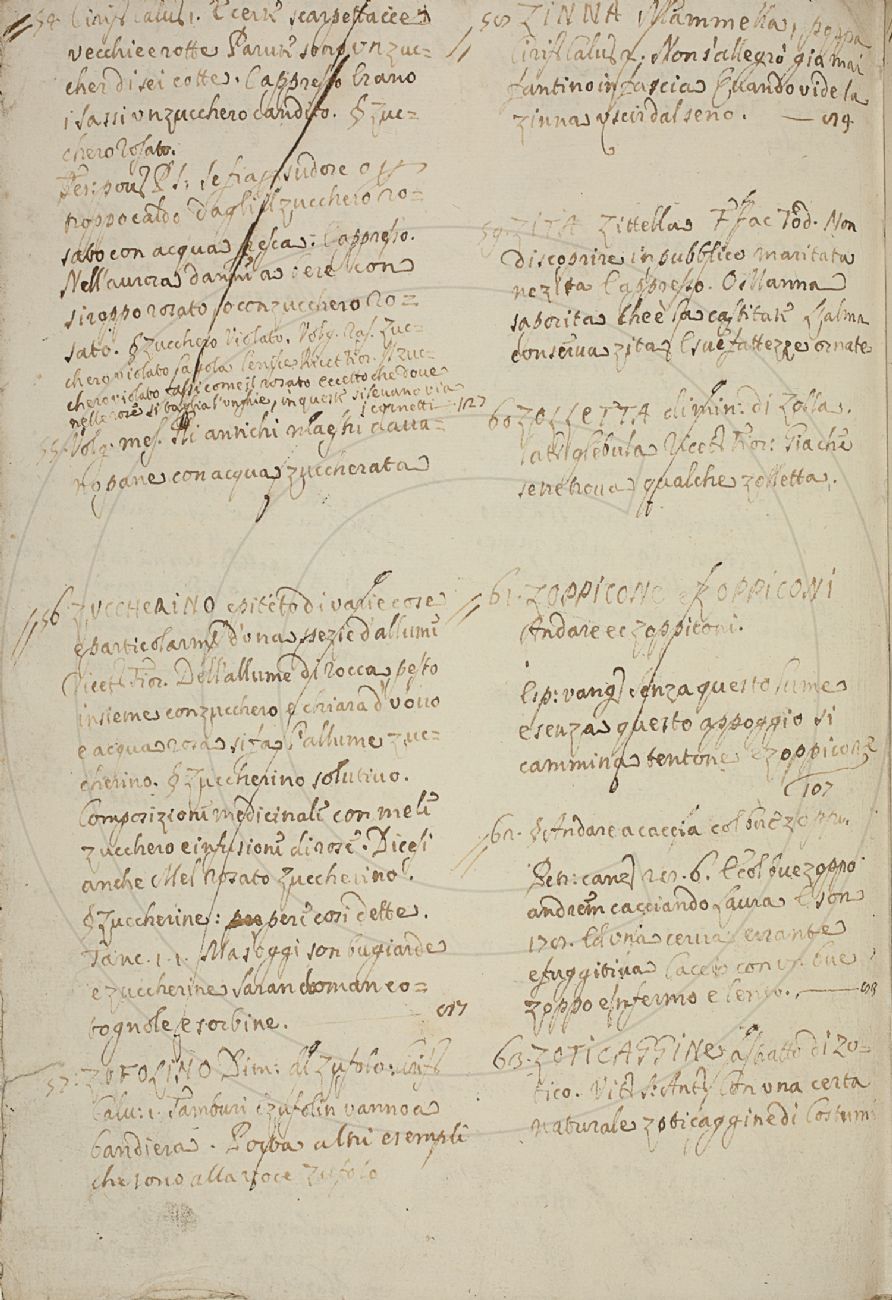 54. Ciriff. Calu. 1. E certe scarpettacce
vecchie e rotte Parute son o vn zuc=
cher di sei cotte. E appresso Erano
i sassi vn zucchero candito. § Zuc=
chero rosato.
Tes: pou. P. S: Se fia sudore o
troppo caldo dagli il zucchero ro=
sato con acqua fresca. E appresso.
Nell'aurora danni a bere con
siroppo rosato o con zucchero ro=
sato. § Zucchero Violato. Volg. Ras. Zuc=
chero violato Ricet. Fior. Il zuc=
chero violato fassi come il rosato eccetto che doue
nelle rose si taglia l'unghie, in queste si leuano via
i cornetti 127
55. Volg. mes. Gli antichi
no pane con acqua zuccherata
56. ZVCCHERINO epiteto di varie cose
e particolarmte d'vna spezie d'allume
Ricet. Fior. Dell'allume di rocca pesto
insieme con zucchero e chiara d'vouo
e acqua rosa si fa l'allume zuc=
cherino. § Zuccherino solutiuo.
Composizione medicinale con mele
zucchero e infusione di rose. Dicesi
anche Mel Rosato Zuccherino.
§ Zuccherine: pere così dette.
Tanc. 1. 1. Ma s'oggi son bugiarde
e zuccherine Saran doman co=
togniole e sorbine. 517
57. ZVFOLINO Dim: di Zufolo. Ciriff.
Calu: 1. Tamburi e zufolin vanno a
bandiera. altri esempli
che sono alla voce Zufolo
58. ZINNA Mammella, poppa
Ciriff. Calu. 2. Non s'allegrò già mai
fantino in fascia Quando vide la
zinna vscir dal seno. 519
59. ZITA Zittella Fr. Iac. Tod. Non
discoprire in pubblico maritata
ne zita E appresso. O Manna
saporita che è la castitate L'alma
conserua zita E sue fattezze ornate
60. ZOLLETTA dimin: di Zolla.
Lat. glebula Ricet. Fior: Giache
se ne troua qualche zolletta.
61. ZOPPICONE e ZOPPICONI
Andare ec zoppiconi.
Esp: vang. Senza questo lume
e senza questo appoggio si
cammina tentone e zoppicone
107
62. § Andare a caccia col bue zoppo.
Petr: canz. 22. 6. E col bue zoppo
andrem cacciando Laura E son
177. Ed vna cerua errante
e fuggitiua Caccio con vn bue
zoppo e'nfermo e lento. 518
63. ZOTICAGGINE astratto di Zo=
tico. Vit. S: Ant. Con vna certa
naturale zoticaggine di costumi